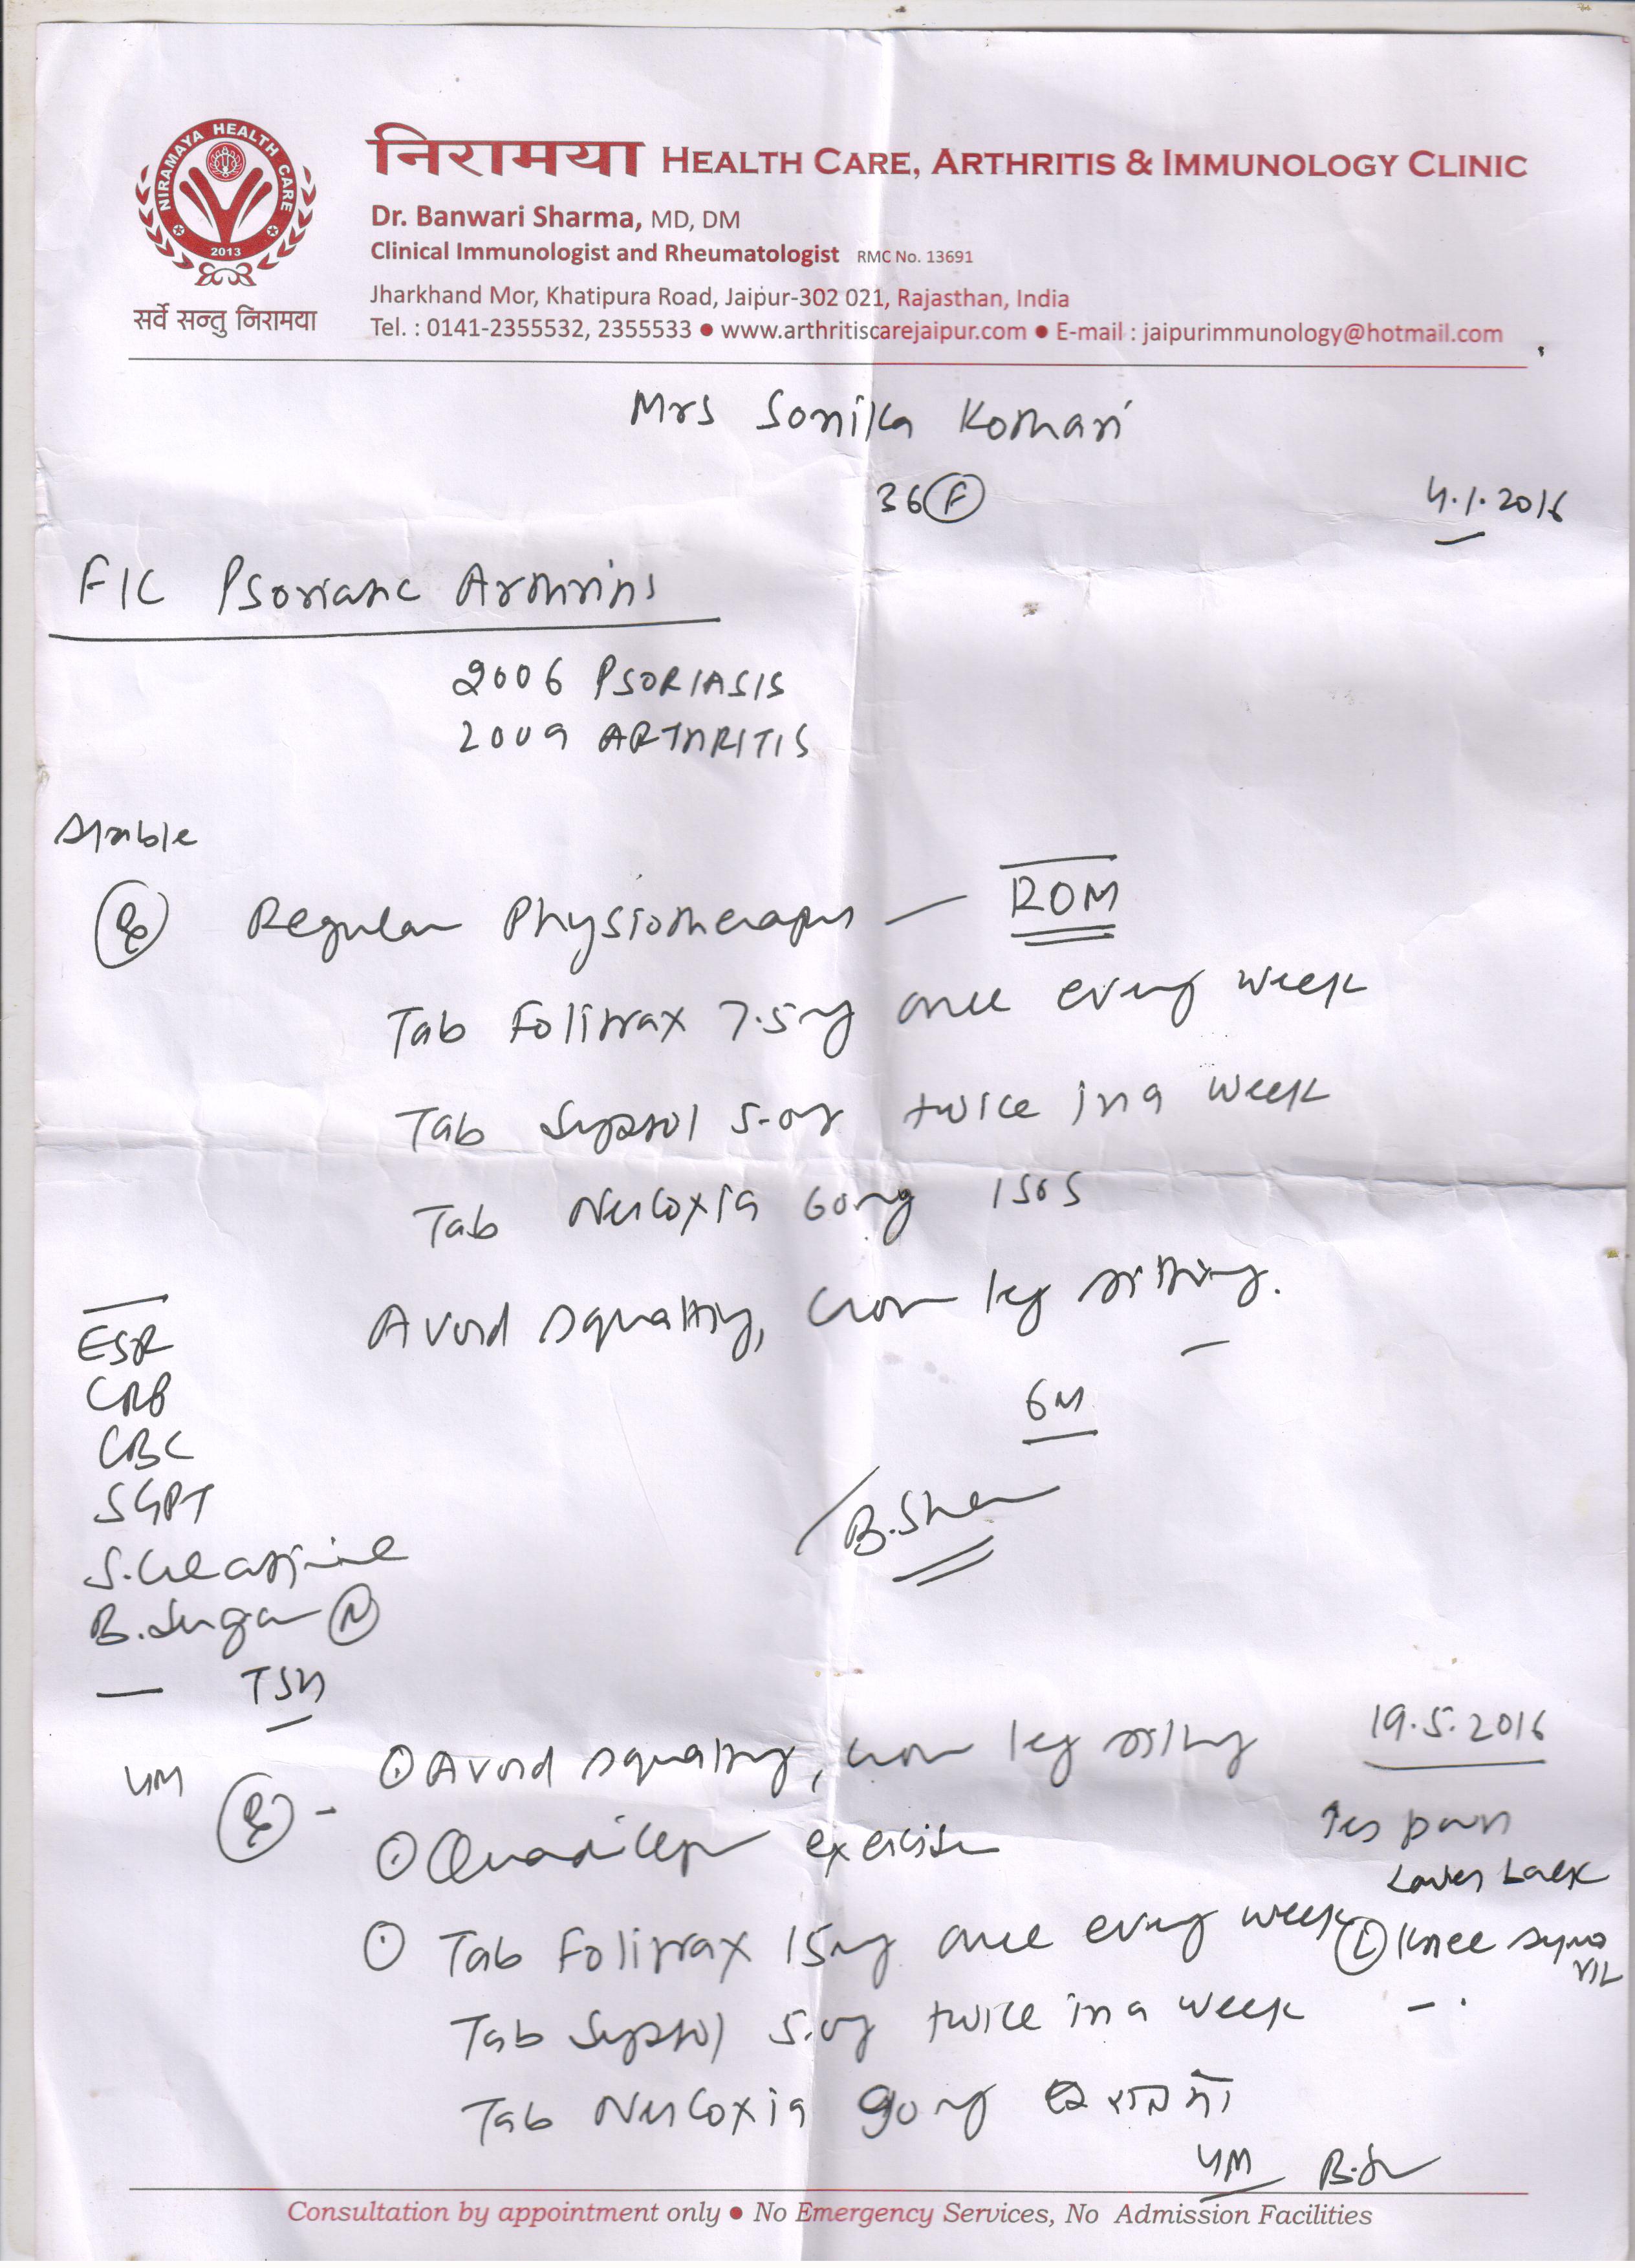 NIRAMAYA HEALTH CARE
2013
सर्वे सन्तु निरामया
निरामया HEALTH CARE, ARTHRITIS & IMMUNOLOGY CLINIC
Dr. Banwari Sharma, MD, DM
Clinical Immunologist and Rheumatologist RMC No. 13691
Jharkhand Mor, Khatipura Road, Jaipur-302 021, Rajasthan, India
Tel. : 0141-2355532, 2355533 ● www.arthritiscarejaipur.com ● E-mail : jaipurimmunology@hotmail.com
Mrs Sonika Kothari
36 F
4.1.2016
F/C Psoriatic Arthritis
2006 PSORIASIS
2009 ARTHRITIS
Stable
Rx Regular Physiotherapy — ROM
Tab Folitrax 7.5mg once every week
Tab 5.0mg twice in a week
Tab Nucoxia 60mg 1 SOS
Avoid squatting, cross leg sitting.
6M
B.Sharma
ESR
CRP
CBC
SGPT
S.Creatinine
B.Sugar R
— TSH
19.5.2016
4M
Rx - ① Avoid squatting, cross leg sitting
① Quadriceps exercise
pain
Lower back
① Tab Folitrax 15mg once every week
L Knee
Tab 5.0mg twice in a week
Tab Nucoxia 90mg
4M
Consultation by appointment only ● No Emergency Services, No Admission Facilities